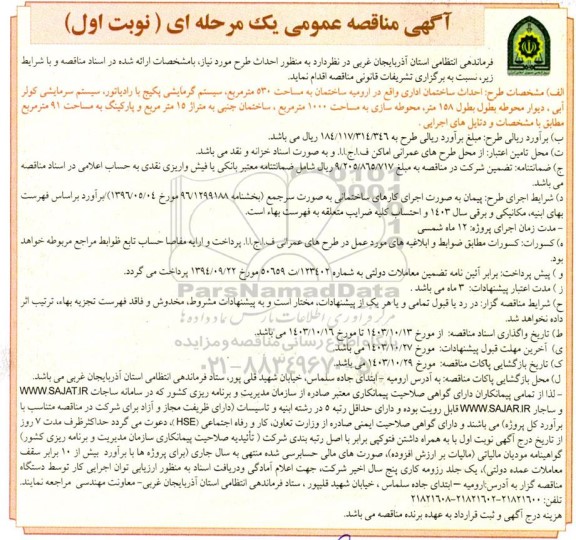 آگهی مناقصه عمومی یک مرحله ای ( نوبت اول)
فرماندهی انتظامی استان آذربایجان غربی در نظردارد به منظور احداث طرح مورد نیاز، بامشخصات ارائه شده در اسناد مناقصه و با شرایط
زیر، نسبت به برگزاری تشریفات قانونی مناقصه اقدام نماید.
الف) مشخصات طرح: احداث ساختمان اداری واقع در ارومیه ساختمان به مساحت ۵۳۰ مترمربع، سیستم گرمایشی پکیج با رادیاتور، سیستم سرمایشی کولر
آبی ، دیوار محوطه بطول بطول ۱۵۸ متر، محوطه سازی به مساحت ۱۰۰۰ مترمربع ، ساختمان جنبی به متراژ ۱۵ متر مربع و پارکینگ به مساحت ۹۱ مترمربع
مطابق با مشخصات و دتایل های اجرایی .
ب) برآورد ریالی طرح: مبلغ برآورد ریالی طرح به ۱۸۴/۱۱۷/۳۱۴/۳۴۶ ریال می باشد.
ت) محل تامین اعتبار: از محل طرح های عمرانی اماکن ف.ا.ج.ا.ا. و به صورت اسناد خزانه و نقد می باشد.
ج) ضمانتنامه: تضمین شرکت در مناقصه به مبلغ ۹/۲۰۵/۸۶۵/۷۱۷ ریال شامل ضمانتنامه معتبر بانکی یا فیش واریزی نقدی به حساب اعلامی در اسناد مناقصه
می باشد.
د) شرایط اجرای طرح: پیمان به صورت اجرای کارهای ساختمانی به صورت سرجمع (بخشنامه ۹۶/۱۲۹۹۱۸۸ مورخ ۱۳۹۶/۰۵/۰۴)/برآورد براساس فهرست
بهای ابنیه، مکانیکی و برقی سال ۱۴۰۳ و احتساب کلیه ضرایب متعلقه به فهرست بهاء است.
- مدت زمان اجرای پروژه: ۱۲ ماه شمسی
ه) کسورات: کسورات مطابق ضوابط و ابلاغیه های مورد عمل در طرح های عمرانی ف.ا.ج.ا.ا. پرداخت و ارایه مفاصا حساب تابع ظوابط مراجع مربوطه خواهد
بود.
و ) پیش پرداخت: برابر آئین نامه تضمین معاملات دولتی به شماره ۱۲۳۴۰۲/ت ۵۰۶۵۹ مورخ ۱۳۹۴/۰۹/۲۲ پرداخت می گردد.
ز ) مدت اعتبار پیشنهادات: ۳ ماه می باشد .
ح) شرایط مناقصه گزار: در رد یا قبول تمامی و یا هر یک از پیشنهادات، مختار است و به پیشنهادات مشروط، مخدوش و فاقد فهرست تجزیه بهاء، ترتیب اثر
داده نخواهد شد.
ط) تاریخ واگذاری اسناد مناقصه: از مورخ ۱۴۰۳/۱۰/۱۳ تا مورخ ۱۴۰۳/۱۰/۱۶ می باشد.
ی) آخرین مهلت قبول پیشنهادات: مورخ ۱۴۰۳/۱۰/۲۷ می باشد.
ک) تاریخ بازگشایی پاکات مناقصه: مورخ ۱۴۰۳/۱۰/۲۹ می باشد.
ل) محل بازگشایی پاکات مناقصه: به آدرس ارومیه – ابتدای جاده سلماس، خیابان شهید قلی پور، ستاد فرماندهی انتظامی استان آذربایجان غربی می باشد.
– لذا از تمامی پیمانکاران دارای گواهی صلاحیت پیمانکاری معتبر صادره از سازمان مدیریت و برنامه ریزی کشور که در سامانه ساجات WWW.SAJAT.IR
و ساجار WWW.SAJAR.IR قابل رویت بوده و دارای حداقل رتبه ۵ در رشته ابنیه و تاسیسات (دارای ظریفت مجاز و آزاد برای شرکت در مناقصه متناسب با
برآورد کل پروژه) می باشند و دارای گواهی صلاحیت ایمنی صادره از وزارت تعاون، کار و رفاه اجتماعی (HSE)، دعوت می گردد حداکثرظرف مدت ۷ روز
از تاریخ درج آگهی نوبت اول با به همراه داشتن فتوکپی برابر با اصل رتبه بندی شرکت ( تأئیدیه صلاحیت پیمانکاری سازمان مدیریت و برنامه ریزی کشور)
گواهینامه مودیان مالیاتی (مالیات بر ارزش افزوده)، صورت های مالی حسابرسی شده منتهی به سال جاری (برای پروژه ها با برآورد بیش از ۱۰ برابر سقف
معاملات عمده دولتی)، یک جلد رزومه کاری پنج سال اخیر شرکت، جهت اعلام آمادگی ودریافت اسناد به منظور ارزیابی توان اجرایی کار توسط دستگاه
مناقصه گزار به آدرس:ارومیه –ابتدای جاده سلماس ، خیابان شهید قلیپور ، ستاد فرماندهی انتظامی استان آذربایجان غربی- معاونت مهندسی مراجعه نمایند.
تلفن: ۲۱۸۲۱۶۰۰-۲۱۸۲۱۶۰۲-۲۱۸۲۱۶۰۸
هزینه درج آگهی و ثبت قرارداد به عهده برنده مناقصه می باشد.
ParsNamadData